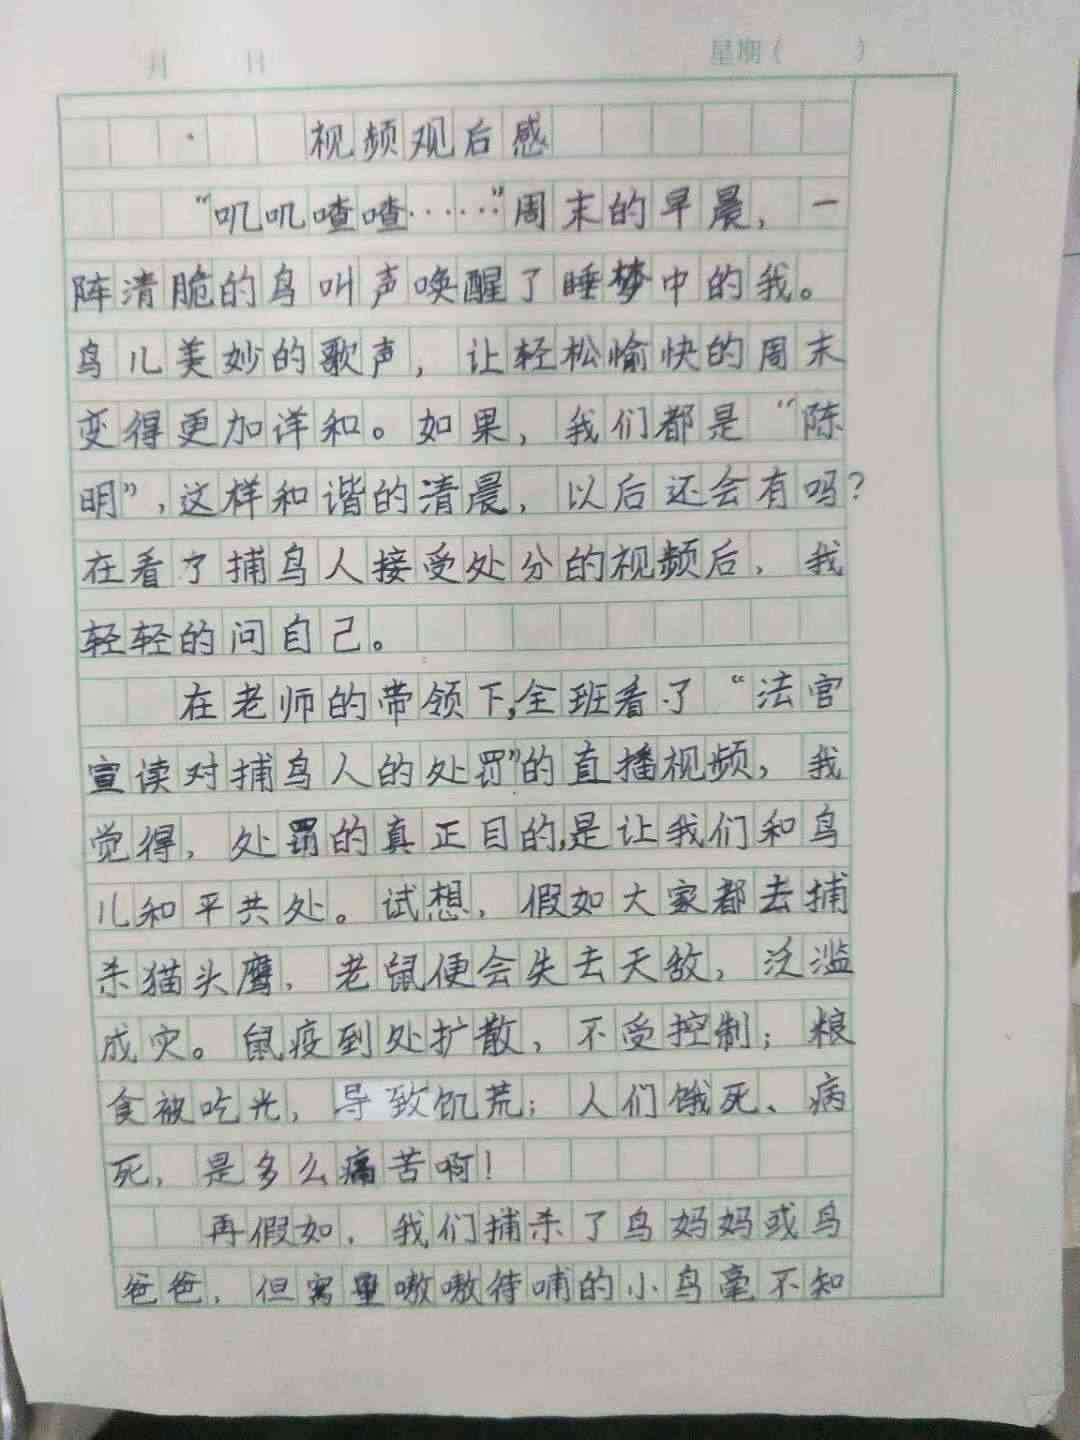 月 日 星期( )
视频观后感
“叽叽喳喳……”周末的早晨，一
阵清脆的鸟叫声唤醒了睡梦中的我。
鸟儿美妙的歌声，让轻松愉快的周末
变得更加详和。如果，我们都是“陈
明”，这样和谐的清晨，以后还会有吗？
在看了捕鸟人接受处分的视频后，我
轻轻的问自己。
在老师的带领下，全班看了“法官
宣读对捕鸟人的处罚”的直播视频，我
觉得，处罚的真正目的，是让我们和鸟
儿和平共处。试想，假如大家都去捕
杀猫头鹰，老鼠便会失去天敌，泛滥
成灾。鼠疫到处扩散，不受控制；粮
食被吃光，导致饥荒；人们饿死、病
死，是多么痛苦啊！
再假如，我们捕杀了鸟妈妈或鸟
爸爸，但窝里嗷嗷待哺的小鸟毫不知